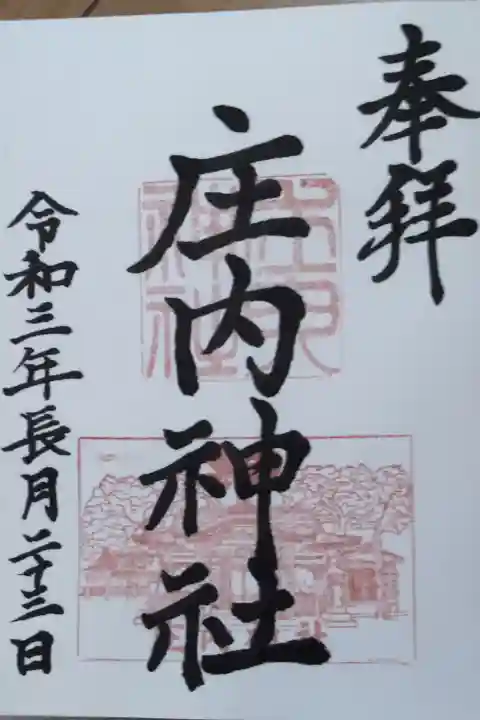 奉拜
庄内神社
庄内
神社
令和三年長月二十三日